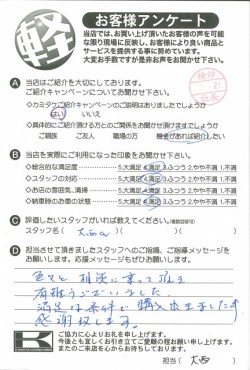 軽
お客様アンケート
当店では、お買い上げ頂いたお客様の声を可能
な限り現場に反映し、お客様により良い商品と
サービスを提供する事に努めています。
大変お手数ですが是非お声をお聞かせ下さい。
A 当店はご紹介を大切にしております。
ご紹介キャンペーンについてお聞かせ下さい
◇カミタケご紹介キャンペーンのご説明はありましたでしょうか
はい いいえ
◇具体的にご紹介頂ける方とのご関係をお聞かせ頂けますでしょうか
ご親族 ご友人 職場の方 機会があれば紹介したい
B 当店を実際にご利用になった印象をお聞かせ下さい。
◇総合的な満足度 5.大満足 4.満足 3.ふつう 2.やや不満 1.不満
◇スタッフの対応 5.大満足 4.満足 3.ふつう 2.やや不満 1.不満
◇お店の雰囲気、清掃 5.大満足 4.満足 3.ふつう 2.やや不満 1.不満
◇納車時のお車の状態 5.大満足 4.満足 3.ふつう 2.やや不満 1.不満
C 評価したいスタッフがいれば教えてください。(複数回答可)
スタッフ名( 大西 )( )( )
D 担当させて頂きましたスタッフへのご指摘、ご指導メッセージを
お願いします。応援メッセージもぜひお願いします。
色々と相談に乗って頂き
有難うございました。
満足な条件で購入出来ました事
感謝致します。
K
ご協力に心よりお礼を申し上げます。
今後とも宜しくお引き立てご愛顧の程お願い申し上げます。
またのご来店を心からお待ちしております。
担当( 大西 )